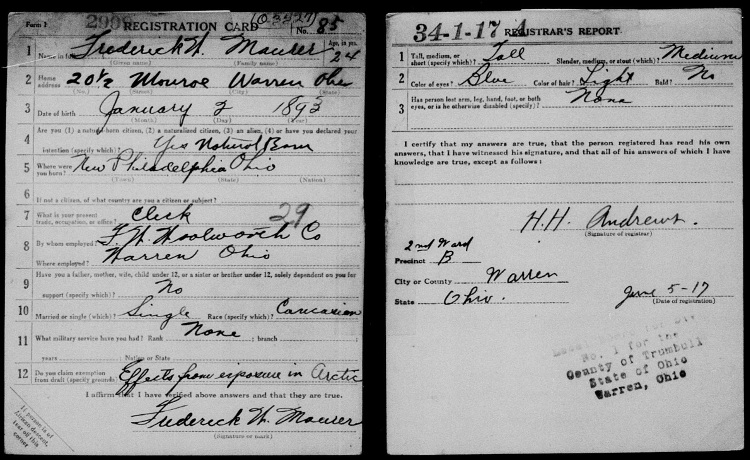 Form 1 2908 REGISTRATION CARD No. 85
1 Name in full Frederick W. Maurer Age, in yrs. 24
(Given name) (Family name)
2 Home address 20 1/2 Monroe Warren Ohio
(No.) (Street) (City) (State)
3 Date of birth January 2 1893
(Month) (Day) (Year)
4 Are you (1) a natural-born citizen, (2) a naturalized citizen, (3) an alien, (4) or have you declared your
intention (specify which)? Yes Natural Born
5 Where were you born? New Philadelphia Ohio
(Town) (State) (Nation)
6 If not a citizen, of what country are you a citizen or subject?
7 What is your present trade, occupation, or office? Clerk 29
8 By whom employed? F. W. Woolworth Co
Where employed? Warren Ohio
9 Have you a father, mother, wife, child under 12, or a sister or brother under 12, solely dependent on you for
support (specify which)? No
10 Married or single (which)? Single Race (specify which)? Caucasian
11 What military service have you had? Rank None ; branch
years Nation or State
12 Do you claim exemption from draft (specify grounds)? Effects from exposure in Arctic
I affirm that I have verified above answers and that they are true.
Frederick W. Maurer
(Signature or mark)
If person is of
African descent,
tear off this
corner
34-1-17 A REGISTRAR'S REPORT
1 Tall, medium, or short (specify which)? Tall Slender, medium, or stout (which)? Medium
2 Color of eyes? Blue Color of hair? Light Bald? No
3 Has person lost arm, leg, hand, foot, or both
eyes, or is he otherwise disabled (specify)? None
I certify that my answers are true, that the person registered has read his own
answers, that I have witnessed his signature, and that all of his answers of which I have
knowledge are true, except as follows:
H. H. Andrews.
(Signature of registrar)
2nd Ward
Precinct B
City or County Warren
State Ohio. June 5-17
(Date of registration)
No. 1 for the
County of Trumbull
State of Ohio
Warren, Ohio